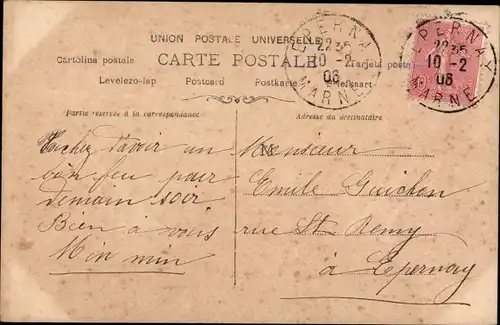 UNION POSTALE UNIVERSELLE
Cartolina postale CARTE POSTALE Tarjeta postal
Levelezo-lap Postcard Postkarte Briefkaart
EPERNAY
22 35
10-2
06
MARNE
EPERNAY
22 35
10-2
06
MARNE
Partie réservée à la correspondance
Adresse du destinataire
Tachez d'avoir un
bon feu pour
demain soir
Bien à vous
Min min
Monsieur
Emile Guichon
rue St Remy
à Epernay